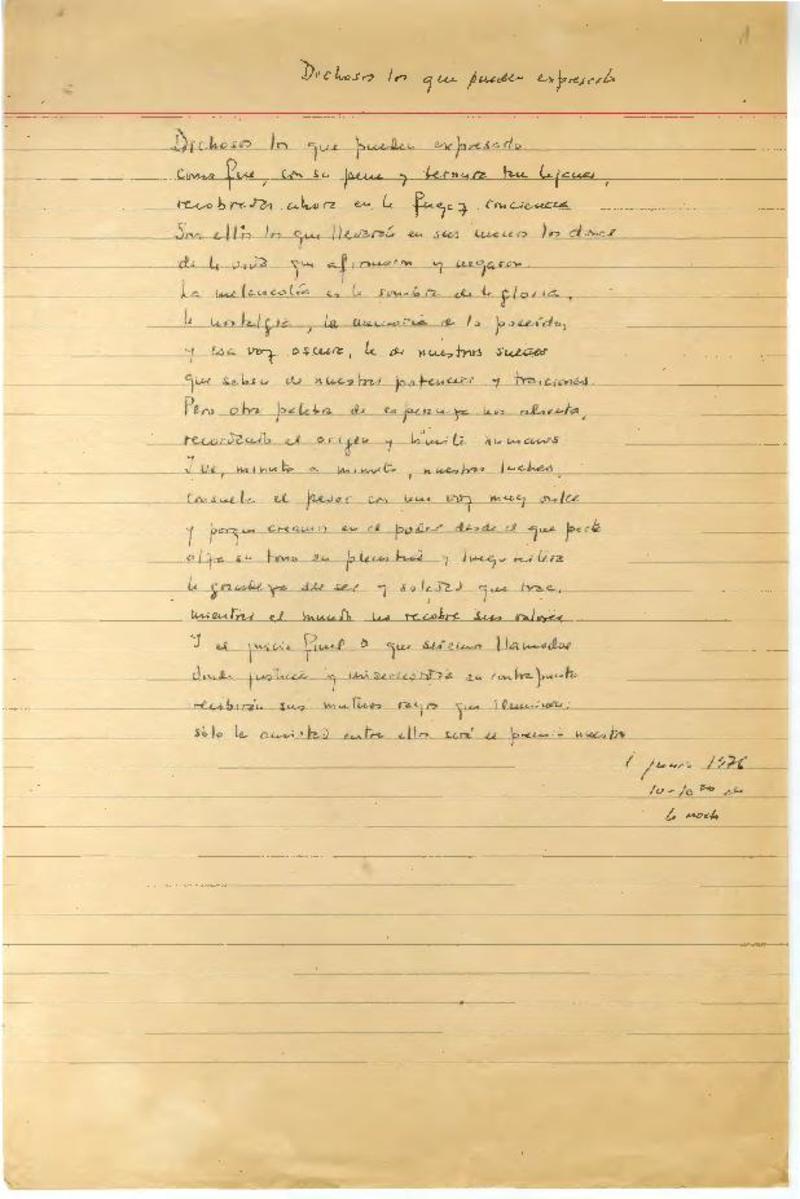 Dichosos los que pueden expresarlo
Dichosos los que pueden expresarlo
como fue, con su pena y ternura tan lejanas,
recobradas ahora en la fugaz conciencia
Son ellos los que llevarán en sus manos los dones
de la vida que afirmaron y negaron.
La melancolía es la sombra de la gloria,
la nostalgia, la memoria de lo perdido,
y esa voz oscura, la de nuestros sueños
que saben de nuestras potencias y traiciones.
Pero otra palabra de esperanza nos alienta,
recordando el origen y límite humanos
Ive, minuto a minuto, nuestras luchas,
consuela el pesar con una voz muy dulce
y porque creamos en el poder desde el que parte
alza su tono en y luego
la grandeza del ser y soledad que trae,
mientras el mundo no recobre sus valores
Y el juicio final a que seremos llamados
donde justicia y misericordia en contrapunto
recibirán sus mutuos rayos que iluminan:
sólo la amistad entre ellos será el premio nuestro
1 junio 1976
10-10 30 de
la noche